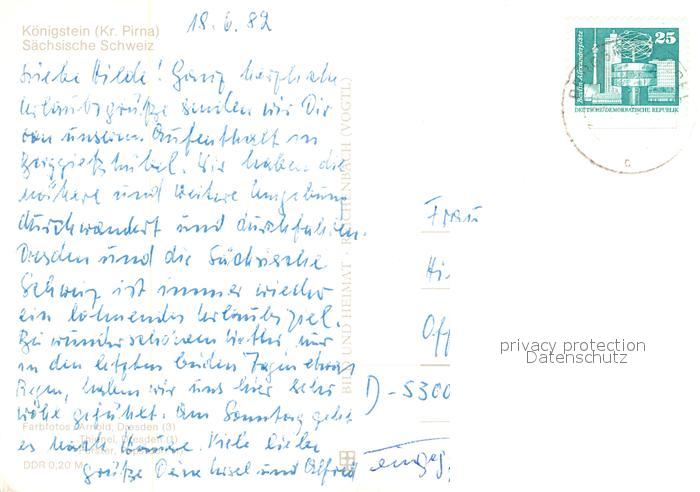 18. 6. 82
Königstein (Kr. Pirna)
Sächsische Schweiz
Liebe Hilde! Ganz herzliche
Urlaubsgrüße senden wir Dir
von unserem Aufenthalt in
Berggießhübel. Wir haben die
nähere und weitere Umgebung
durchwandert und durchfahren.
Dresden und die Sächsische
Schweiz ist immer wieder
ein lohnendes Urlaubsziel.
Bei wunderschönem Wetter, nur
in den letzten beiden Tagen etwas
Regen, haben wir uns hier sehr
wohl gefühlt. Am Sonntag geht
es nach Hause. Viele liebe
Grüße Deine Ursel und Alfred
Farbfotos: Arnold, Dresden (3)
Dresden (1)
DDR 0,20 M
BILD UND HEIMAT · REICHENBACH (VOGTL)
25
Berlin, Alexanderplatz
DEUTSCHE DEMOKRATISCHE REPUBLIK
Frau
Hi
Off
D-5300
privacy protection
Datenschutz